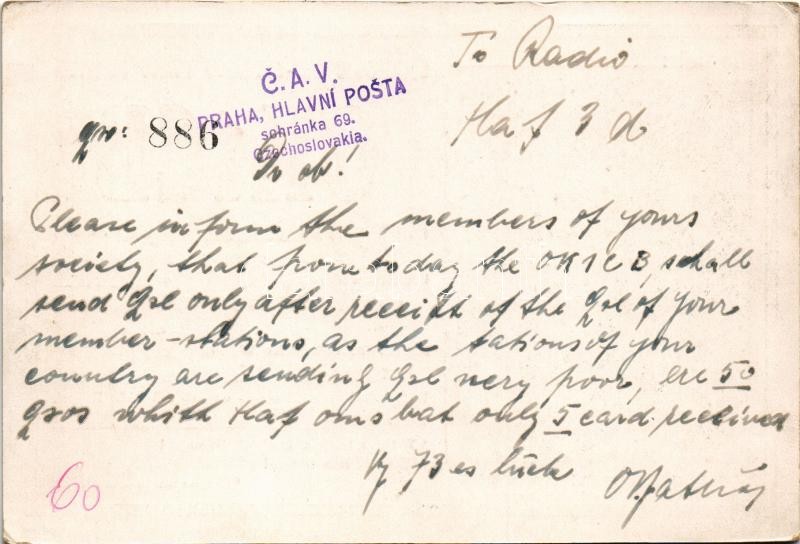 To Radio
Č. A. V.
PRAHA, HLAVNÍ POŠTA
schránka 69.
Czechoslovakia.
qrv: 886
Haf 3 d
Dr ob!
Please inform the members of yours
society, that from today the OK1CB, schall
send Qsl only after receitt of the Qsl of your
member-stations, as the tations of your
country are sending Qsl very poor, ere 50
qsos whith Haf oms bat only 5 card received
Vy 73 es luck
60